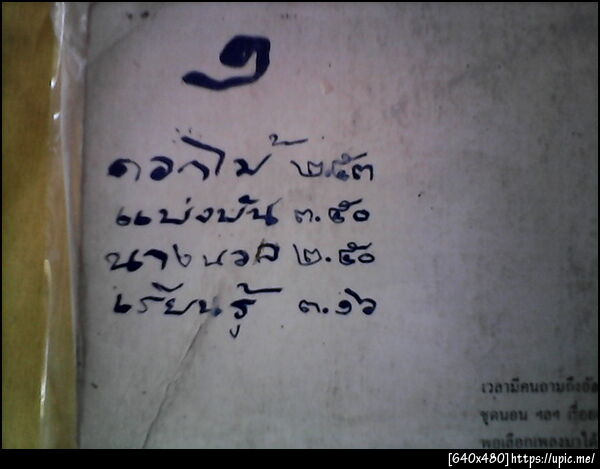 ๑
ดอกไม้ ๒.๕๓
แบ่งบัน ๓.๕๐
นางนวล ๒.๕๐
เรียนรู้ ๓.๑๖
เวลามีคนถามถึงอัล
ชุดนอน ฯลฯ เรื่อ
พอเลือกเพลงมาได้
[640x480]https://upic.me/